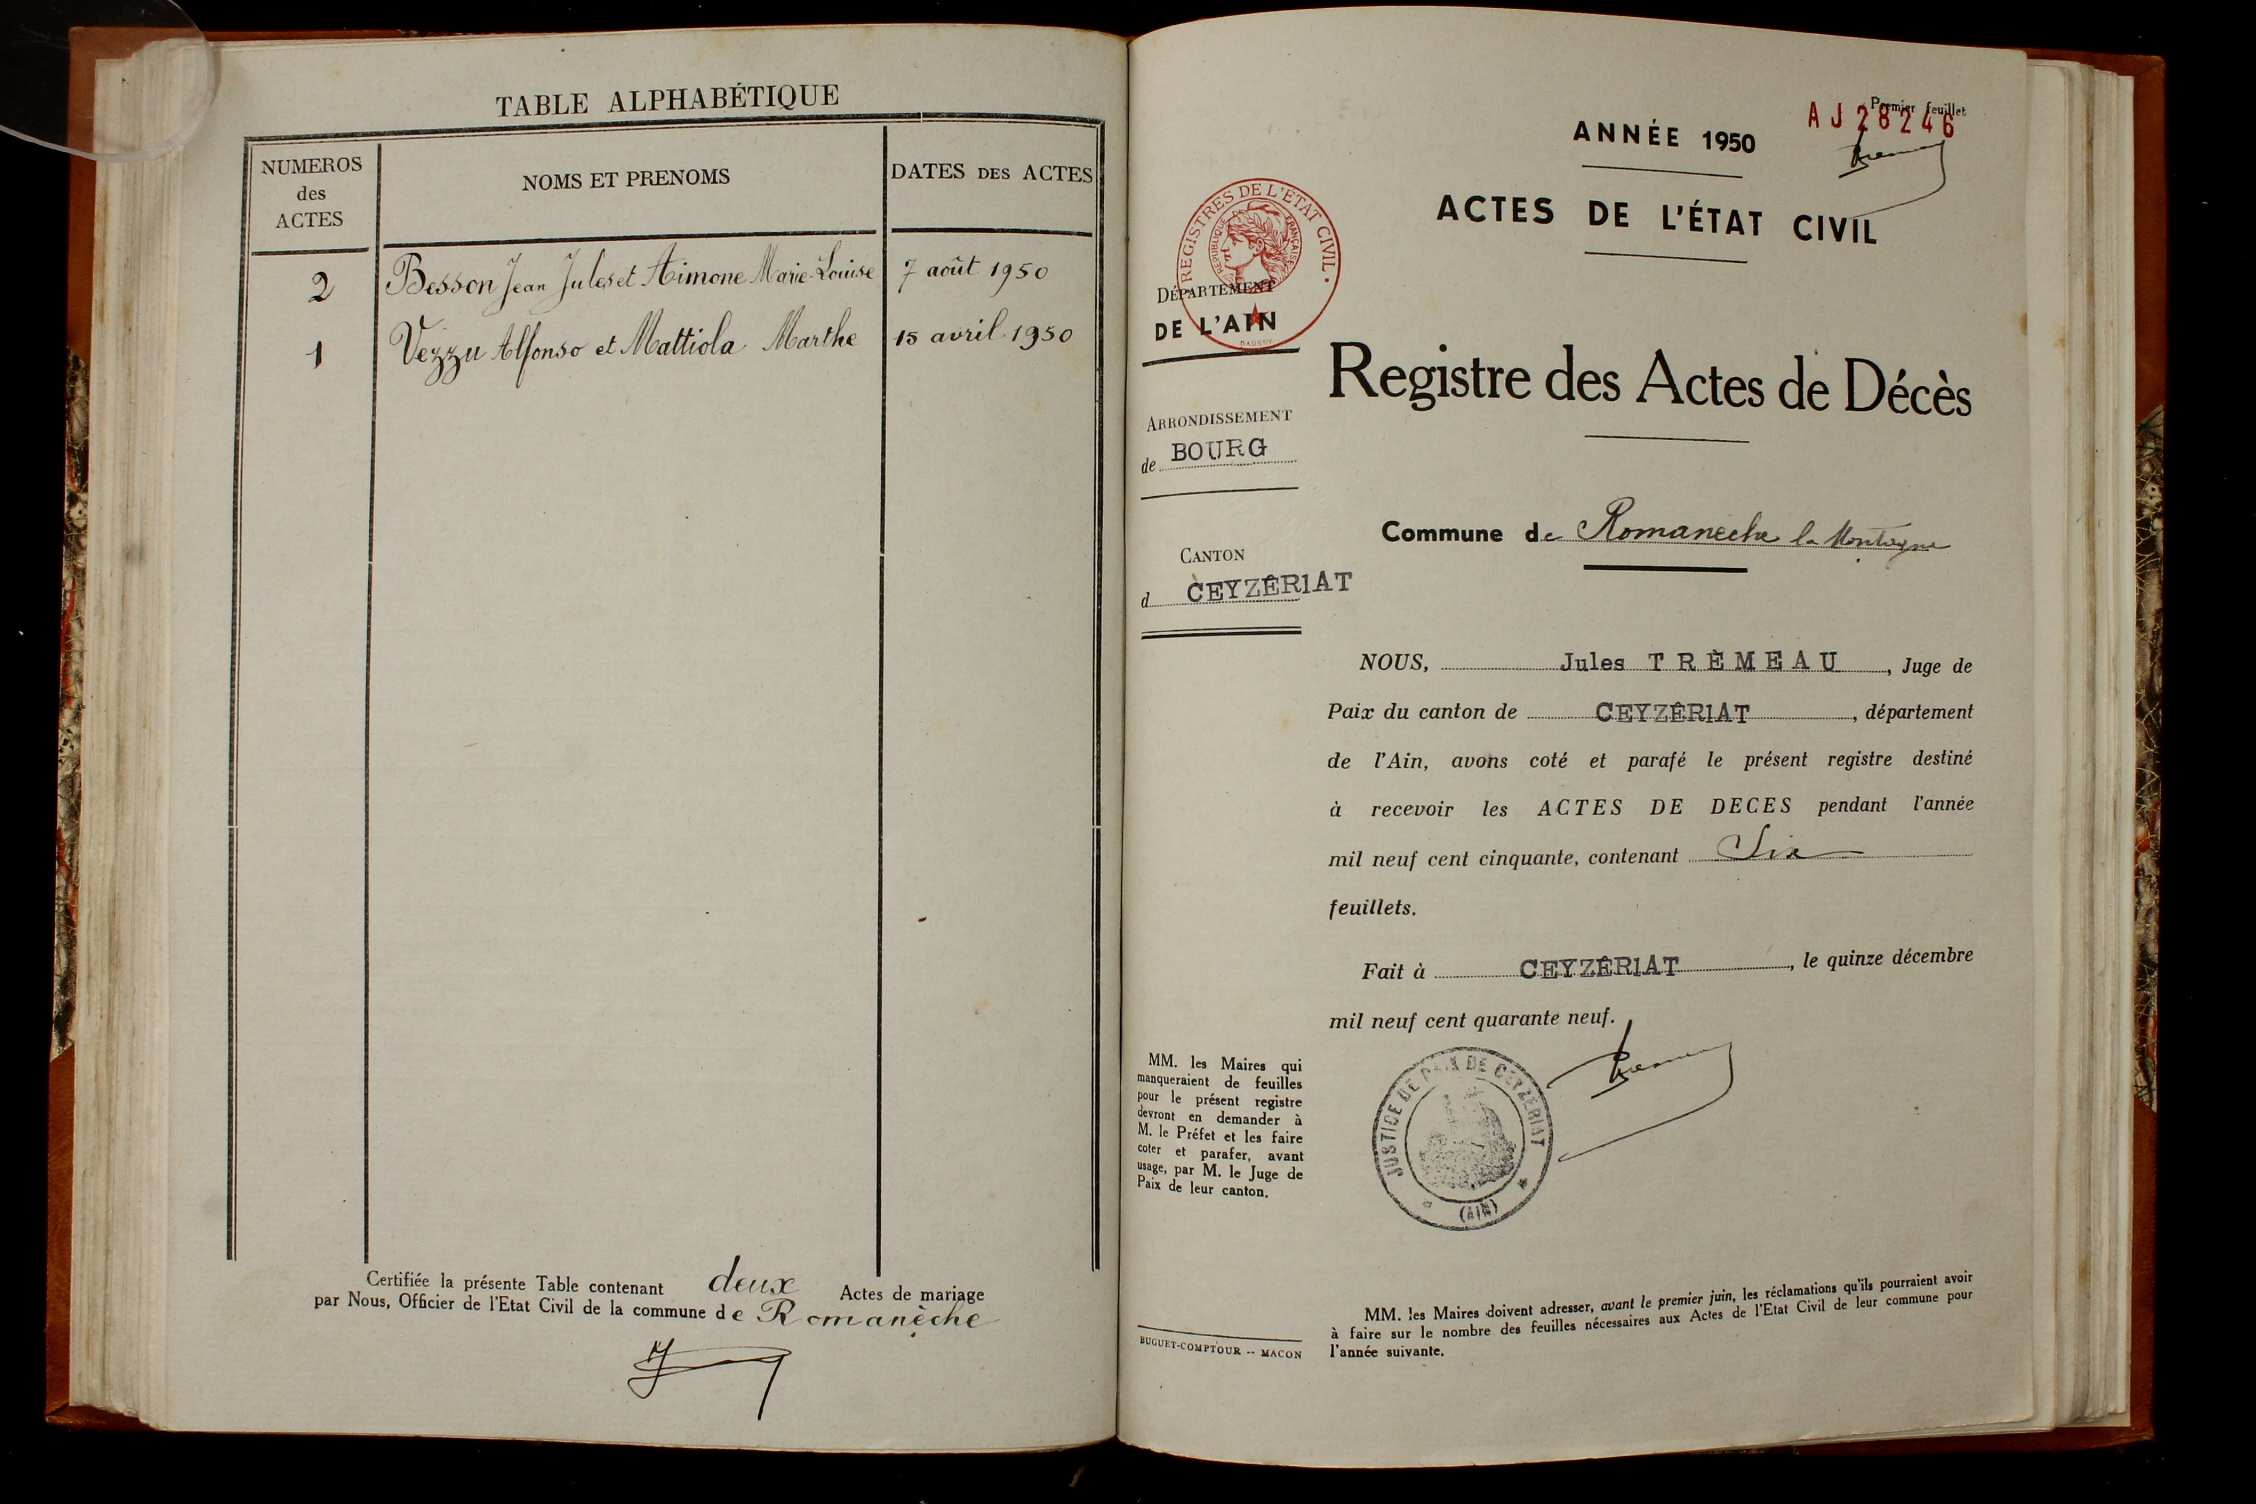 TABLE ALPHABÉTIQUE
NUMEROS
des
ACTES
NOMS ET PRENOMS
DATES DES ACTES
2 Besson Jean Jules et Aimone Marie-Louise 7 août 1950
1 Vezzu Alfonso et Mattiola Marthe 15 avril 1950
Certifiée la présente Table contenant deux Actes de mariage
par Nous, Officier de l'Etat Civil de la commune de Romanèche
Premier feuillet
AJ28246
ANNÉE 1950
ACTES DE L'ÉTAT CIVIL
REGISTRES DE L'ETAT CIVIL
REPUBLIQUE FRANÇAISE
DÉPARTEMENT
DE L'AIN
Registre des Actes de Décès
ARRONDISSEMENT
de BOURG
Commune de Romanèche la Montagne
CANTON
d CEYZÊR1AT
NOUS, Jules TRÈMEAU, Juge de
Paix du canton de CEYZÊR1AT, département
de l'Ain, avons coté et parafé le présent registre destiné
à recevoir les ACTES DE DECES pendant l'année
mil neuf cent cinquante, contenant Six
feuillets.
Fait à CEYZÊR1AT, le quinze décembre
mil neuf cent quarante neuf.
JUSTICE DE PAIX DE CEYZERIAT
(AIN)
MM. les Maires qui
manqueraient de feuilles
pour le présent registre
devront en demander à
M. le Préfet et les faire
coter et parafer, avant
usage, par M. le Juge de
Paix de leur canton.
BUGUET-COMPTOUR -- MACON
MM. les Maires doivent adresser, avant le premier juin, les réclamations qu'ils pourraient avoir
à faire sur le nombre des feuilles nécessaires aux Actes de l'Etat Civil de leur commune pour
l'année suivante.